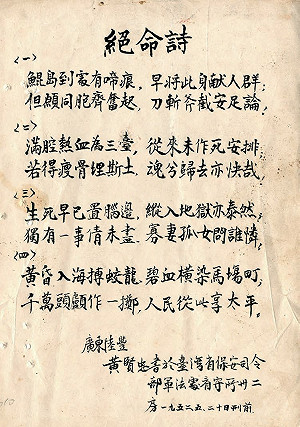 絕命詩
(一)
鯤島到處有啼痕，早將此身獻人群；
但願同胞齊奮起，刀斬斧截安足論，
(二)
滿腔熱血為三臺，從來未作死安排；
若得瘦骨埋斯土，魂兮歸去亦快哉，
(三)
生死早已置腦邊，縱入地獄亦泰然，
獨有一事情未盡，寡妻孤女問誰憐，
(四)
黃昏入海搏蛟龍，碧血橫染馬場町，
千萬頭顱作一擲，人民從此享太平。
廣東陸豐
黃賢忠書於臺灣省保安司令
部軍法處看守所卅二
房 一九五二、五、二十日刑前